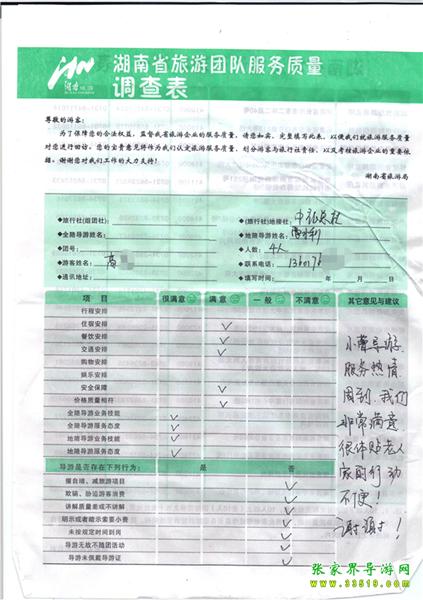 湖南省旅游团队服务质量
调查表
尊敬的游客：
为了保障您的合法权益，监督我省旅游企业的服务质量，请您如实、完整填写此表，以便我们就旅游服务质量
对您进行回访。您的宝贵意见将作为我们认定旅游服务质量、划分游客与旅行社责任，以及考核旅游企业的重要依
据。谢谢您对我们工作的大力支持！
湖南省旅游局
◆旅行社(组团社): ◆(旅行社)地接社:
◆全陪导游姓名: ◆地陪导游姓名:
◆团号: ◆人数: 4人
◆游客姓名: ◆联系电话:
◆通讯地址: ◆填写时间: 年 月 日
项 目 很满意 满意 一般 不满意 其它意见与建议
行程安排
住宿安排 ✓
餐饮安排 ✓
交通安排 ✓
购物安排
娱乐安排
安全保障 ✓
价格质量相符 ✓
全陪导游业务技能 ✓
全陪导游服务态度 ✓
地陪导游业务技能 ✓
地陪导游服务态度 ✓
导游是否存在下列行为: 是 否
擅自增、减旅游项目 ✓
欺骗、胁迫游客消费 ✓
讲解质量差或不讲解 ✓
明示或者暗示索要小费 ✓
未按规定时间到岗 ✓
导游无故不随团活动 ✓
导游未佩戴导游证 ✓
小曹导游
服务热情
周到.我们
非常满意
很体贴老人
家因行动
不便！
谢谢！
张家界导游网
www.33519.com